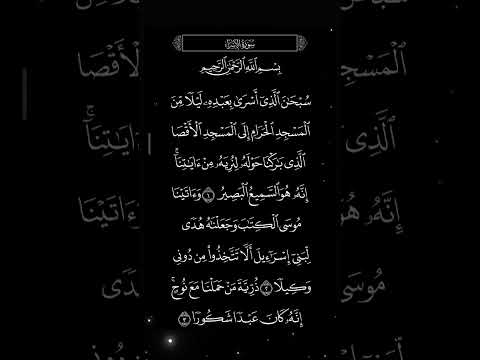 سُورَةُ الإِسْرَاءِ
بِسْمِ ٱللَّهِ ٱلرَّحْمَٰنِ ٱلرَّحِيمِ
سُبْحَٰنَ ٱلَّذِىٓ أَسْرَىٰ بِعَبْدِهِۦ لَيْلًا مِّنَ
ٱلْمَسْجِدِ ٱلْحَرَامِ إِلَى ٱلْمَسْجِدِ ٱلْأَقْصَا
ٱلَّذِى بَٰرَكْنَا حَوْلَهُۥ لِنُرِيَهُۥ مِنْ ءَايَٰتِنَآ ۚ
إِنَّهُۥ هُوَ ٱلسَّمِيعُ ٱلْبَصِيرُ ١ وَءَاتَيْنَا
مُوسَى ٱلْكِتَٰبَ وَجَعَلْنَٰهُ هُدًى
لِّبَنِىٓ إِسْرَٰٓءِيلَ أَلَّا تَتَّخِذُوا۟ مِن دُونِى
وَكِيلًا ٢ ذُرِّيَّةَ مَنْ حَمَلْنَا مَعَ نُوحٍ ۚ
إِنَّهُۥ كَانَ عَبْدًا شَكُورًا ٣